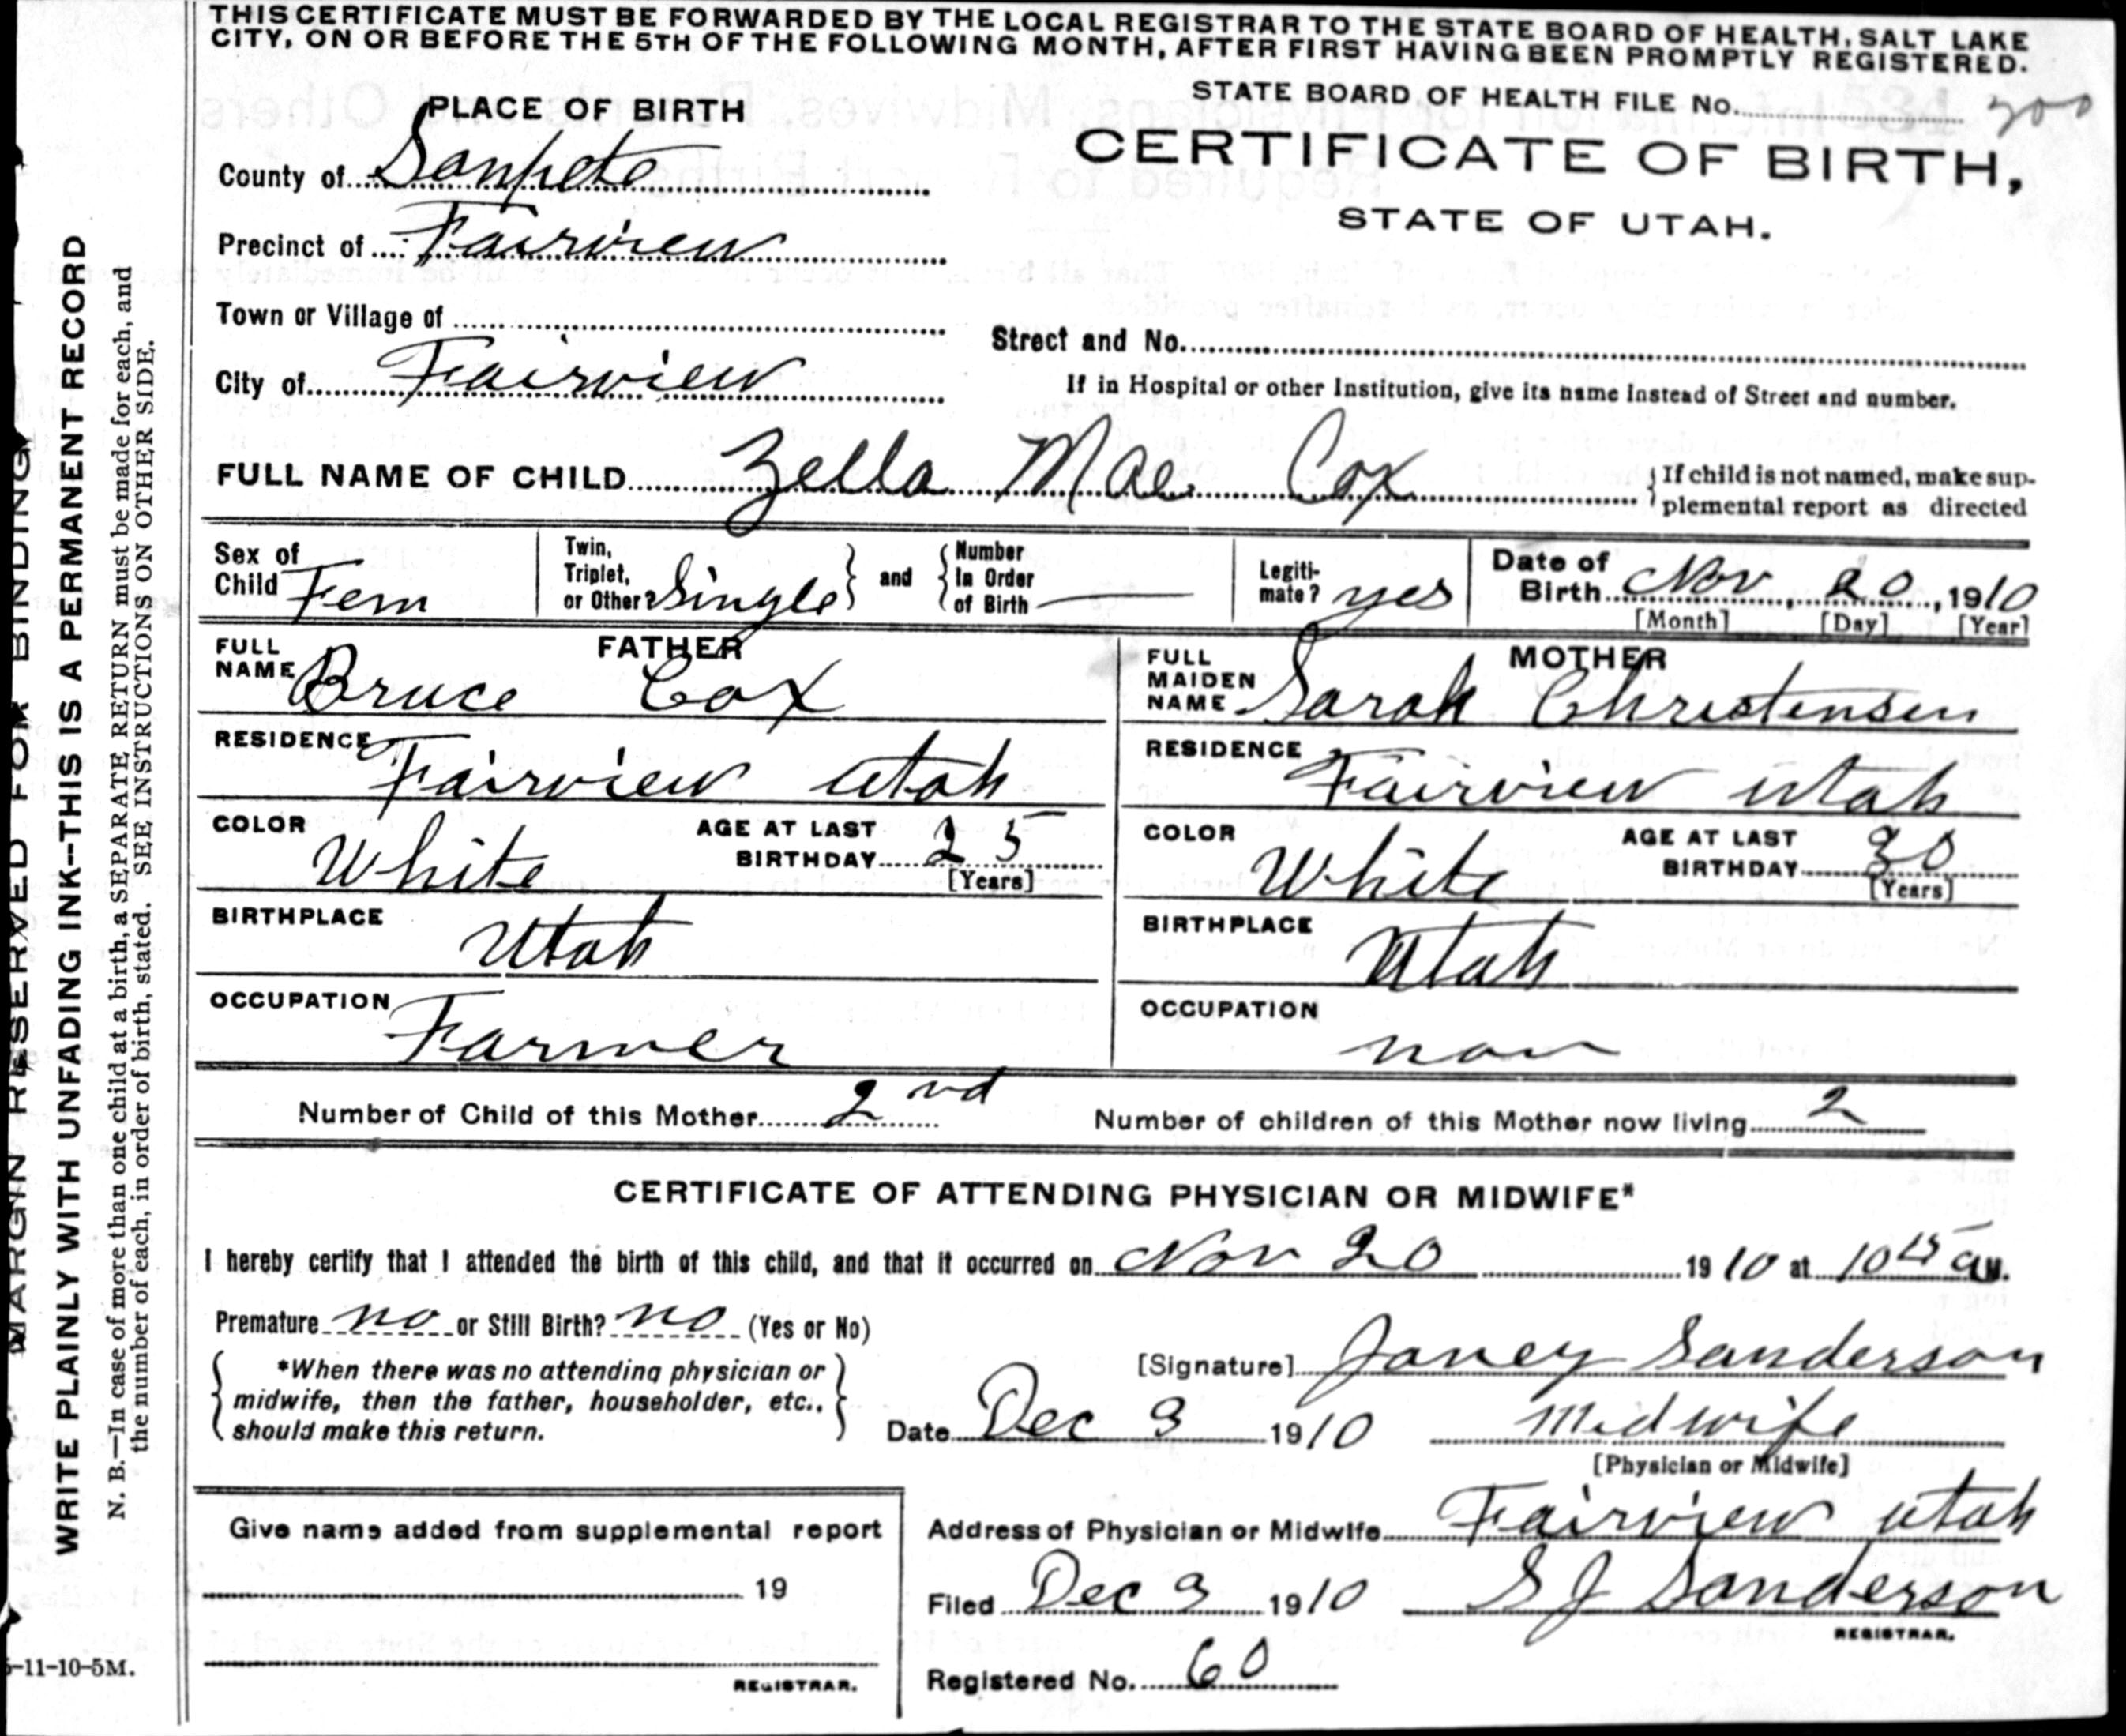 THIS CERTIFICATE MUST BE FORWARDED BY THE LOCAL REGISTRAR TO THE STATE BOARD OF HEALTH, SALT LAKE
CITY, ON OR BEFORE THE 5TH OF THE FOLLOWING MONTH, AFTER FIRST HAVING BEEN PROMPTLY REGISTERED.
STATE BOARD OF HEALTH FILE No. 300
PLACE OF BIRTH
CERTIFICATE OF BIRTH,
STATE OF UTAH.
County of Sanpete
Precinct of Fairview
Town or Village of
Street and No.
City of Fairview
If in Hospital or other Institution, give its name instead of Street and number.
FULL NAME OF CHILD Zella Mae Cox
If child is not named, make sup-
plemental report as directed
Sex of Child Fem
Twin, Triplet, or Other? Single and Number In Order of Birth —
Legiti-mate? yes
Date of Birth Nov, 20, 1910
[Month] [Day] [Year]
FATHER
FULL NAME Bruce Cox
RESIDENCE Fairview Utah
COLOR White AGE AT LAST BIRTHDAY 25
[Years]
BIRTHPLACE Utah
OCCUPATION Farmer
MOTHER
FULL MAIDEN NAME Sarah Christensen
RESIDENCE Fairview Utah
COLOR White AGE AT LAST BIRTHDAY 30
[Years]
BIRTHPLACE Utah
OCCUPATION non
Number of Child of this Mother 2nd Number of children of this Mother now living 2
CERTIFICATE OF ATTENDING PHYSICIAN OR MIDWIFE*
I hereby certify that I attended the birth of this child, and that it occurred on Nov 20 1910 at 10 15 a M.
Premature no or Still Birth? no (Yes or No)
*When there was no attending physician or
midwife, then the father, householder, etc.,
should make this return.
[Signature] Janey Sanderson
Date Dec 3 1910 Midwife
[Physician or Midwife]
Give name added from supplemental report
19
REGISTRAR.
Address of Physician or Midwife Fairview Utah
Filed Dec 3 1910 S J Sanderson
REGISTRAR.
Registered No. 60
MARGIN RESERVED FOR BINDING
WRITE PLAINLY WITH UNFADING INK--THIS IS A PERMANENT RECORD
N. B.—In case of more than one child at a birth, a SEPARATE RETURN must be made for each, and
the number of each, in order of birth, stated. SEE INSTRUCTIONS ON OTHER SIDE.
-11-10-5M.